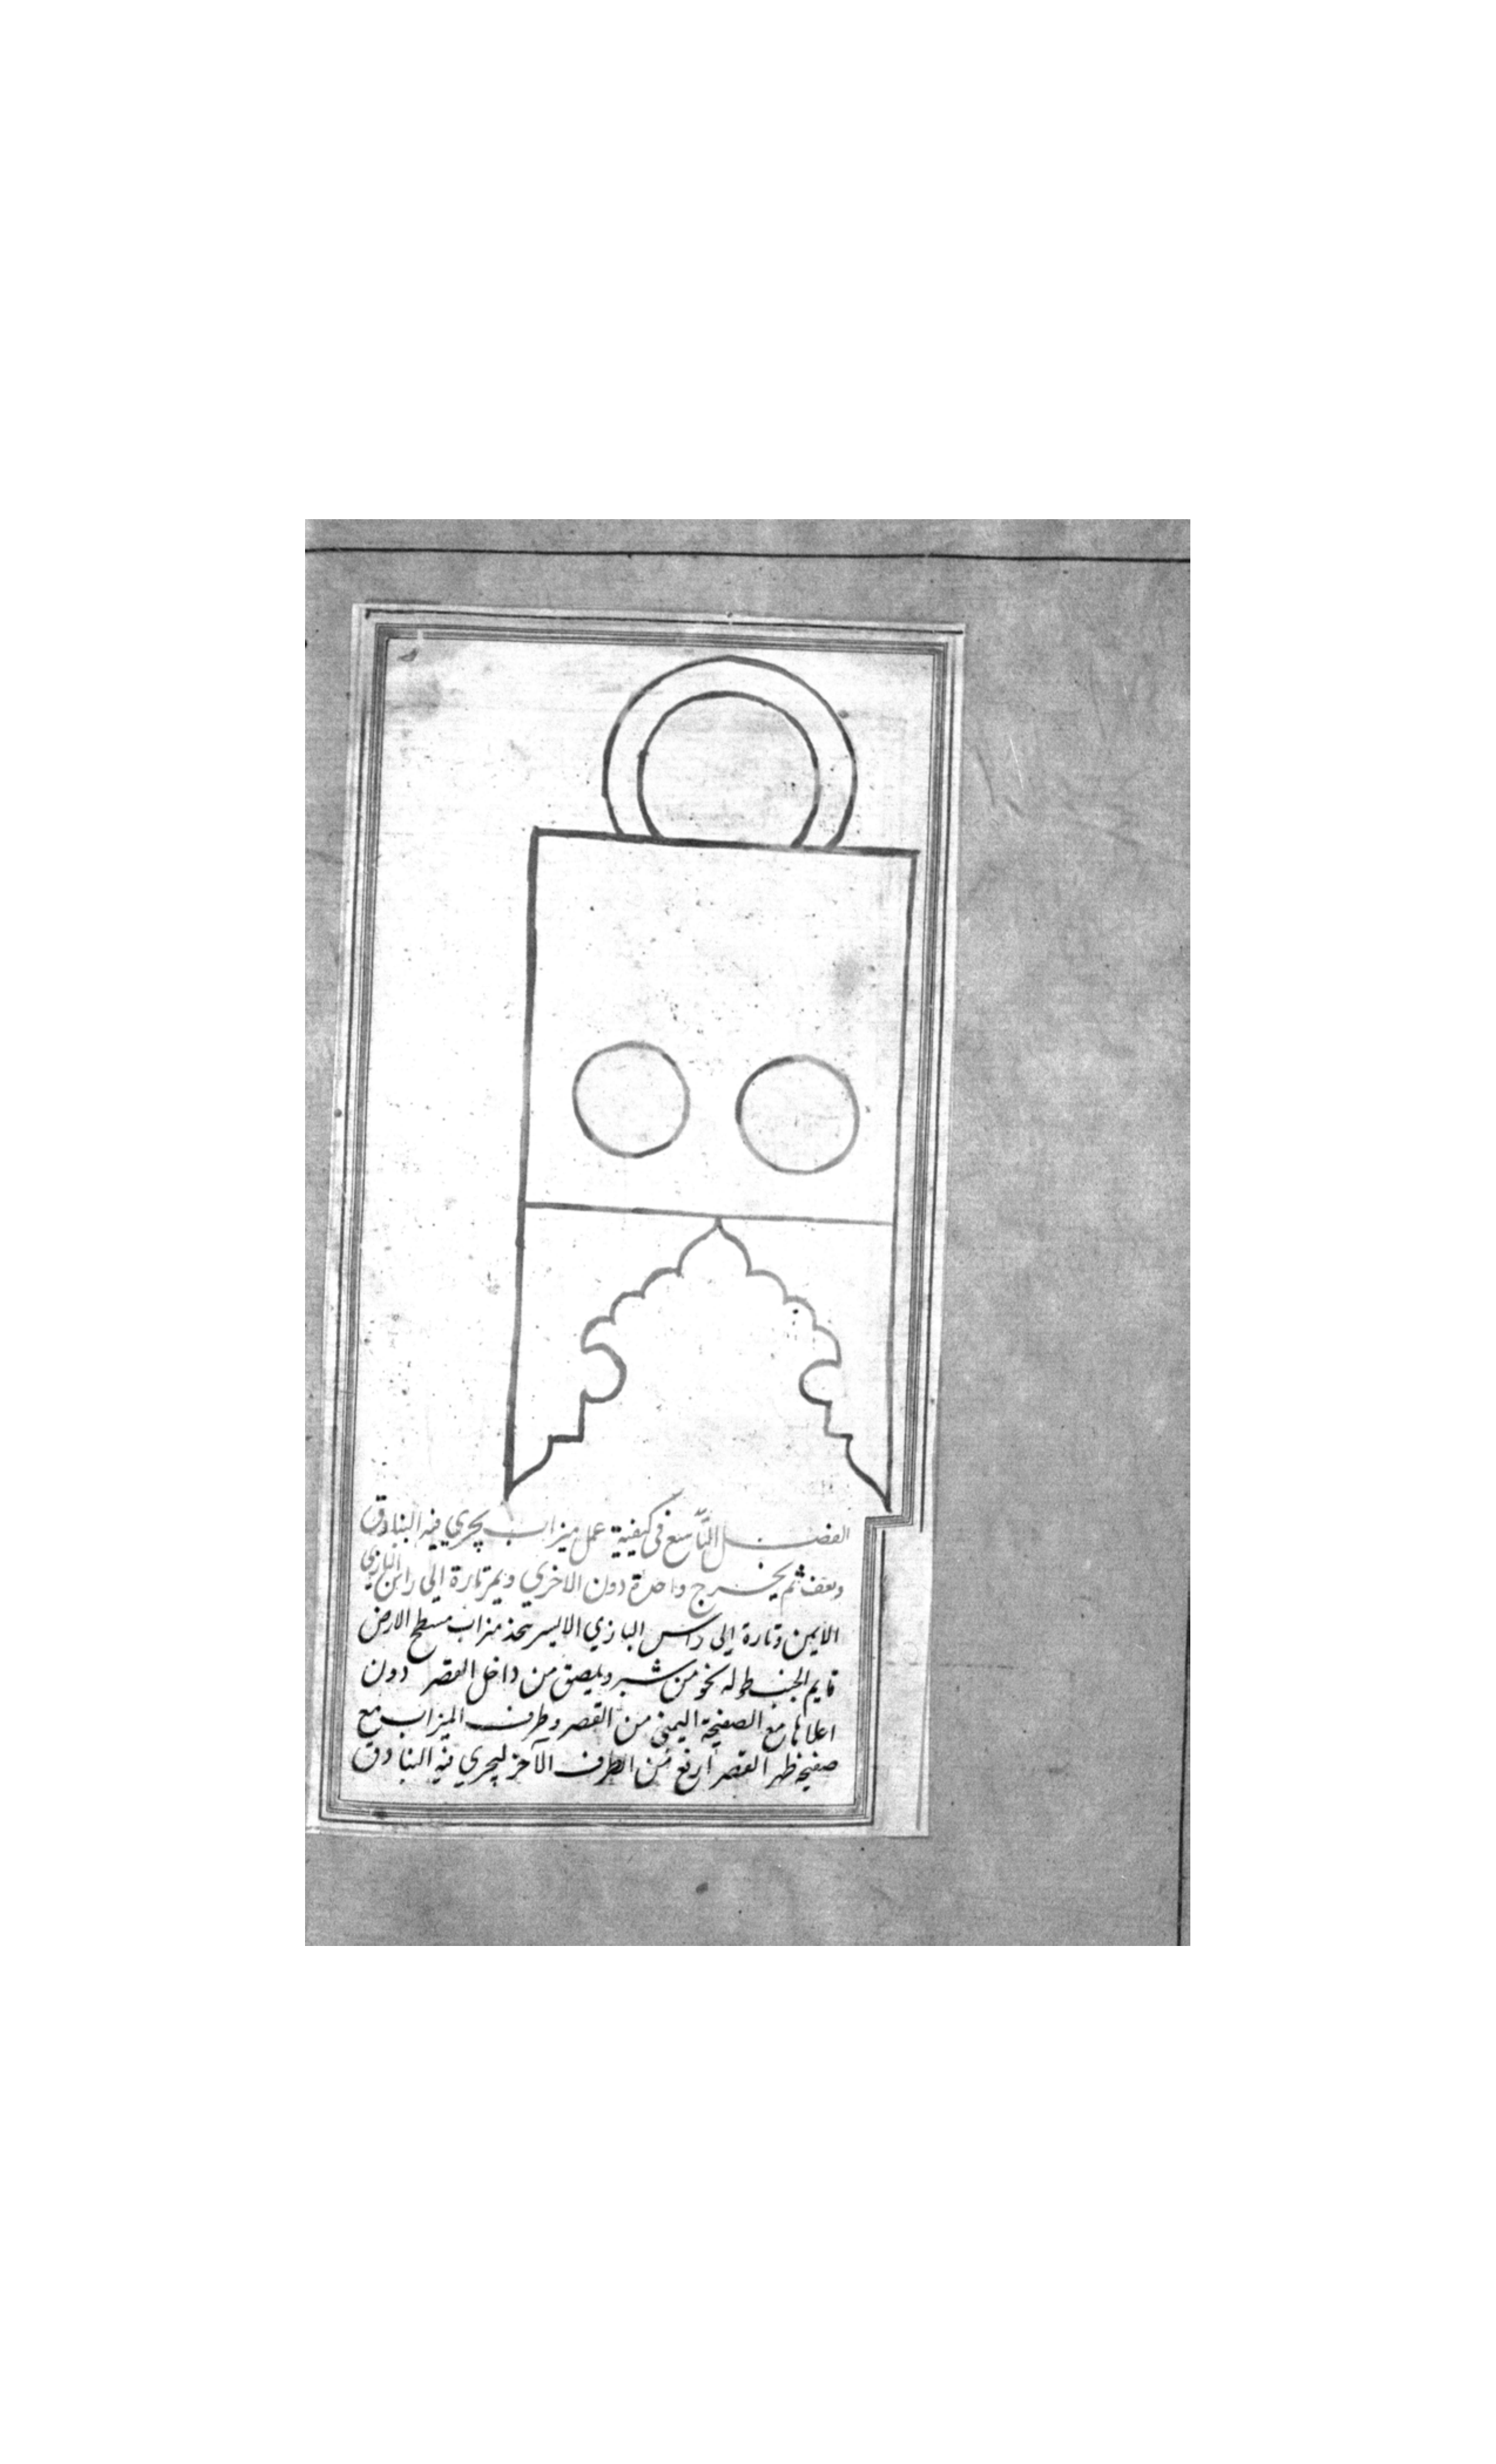 الفصل التاسع في كيفية عمل ميزاب يجري فيه البنادق
وتقف ثم يخرج واحدة دون الاخري ويمر تارة الي راس البازي
الايمن وتارة الي راس البازي الايسر يتخذ ميزاب مسطح الارض
قايم الجنب طوله نحو من شبر ويلصق من داخل القصر دون
اعلاها مع الصفيحة اليمني من القصر وطرف الميزاب مع
صفيحة ظهر القصر ارفع من الطرف الآخر ليجري فيه البنادق